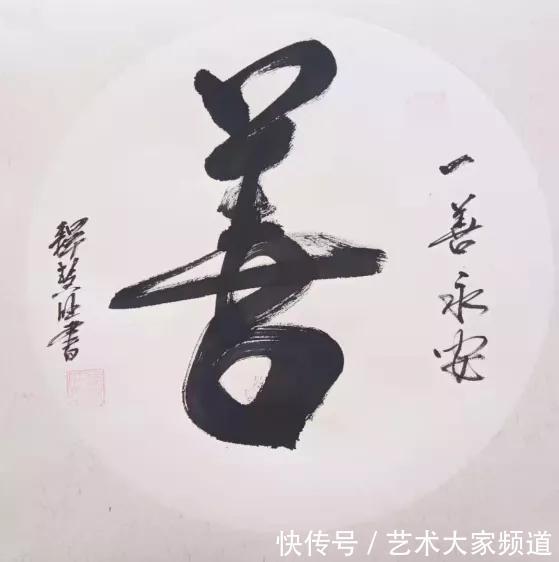 一善永安
善
釋慧旺書
快传号 / 艺术大家频道